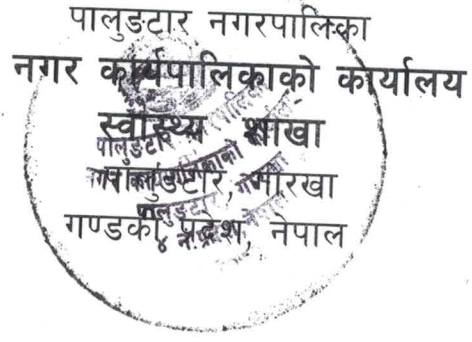 पालुङटार नगरपालिका
नगर कार्यपालिकाको कार्यालय
स्वास्थ्य शाखा
पालुङटार, गोरखा
गण्डकी प्रदेश, नेपाल